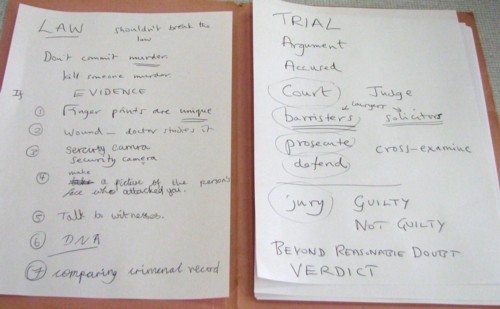 LAW
Shouldn't break the
law
Don't commit murder.
kill someone murder.
If EVIDENCE
① Finger prints are unique
② Wound – doctor studies it
③ sercurity camra
security camera
④ make
take a picture of the person's
face who attacked you.
⑤ Talk to witnesses.
⑥ DNA
⑦ comparing criminal record
TRIAL
Argument
Accused
Court Judge
& lawyers
barristers solicitors
prosecute
cross-examine
defend
jury GUILTY
NOT GUILTY
BEYOND REASONABLE DOUBT
VERDICT